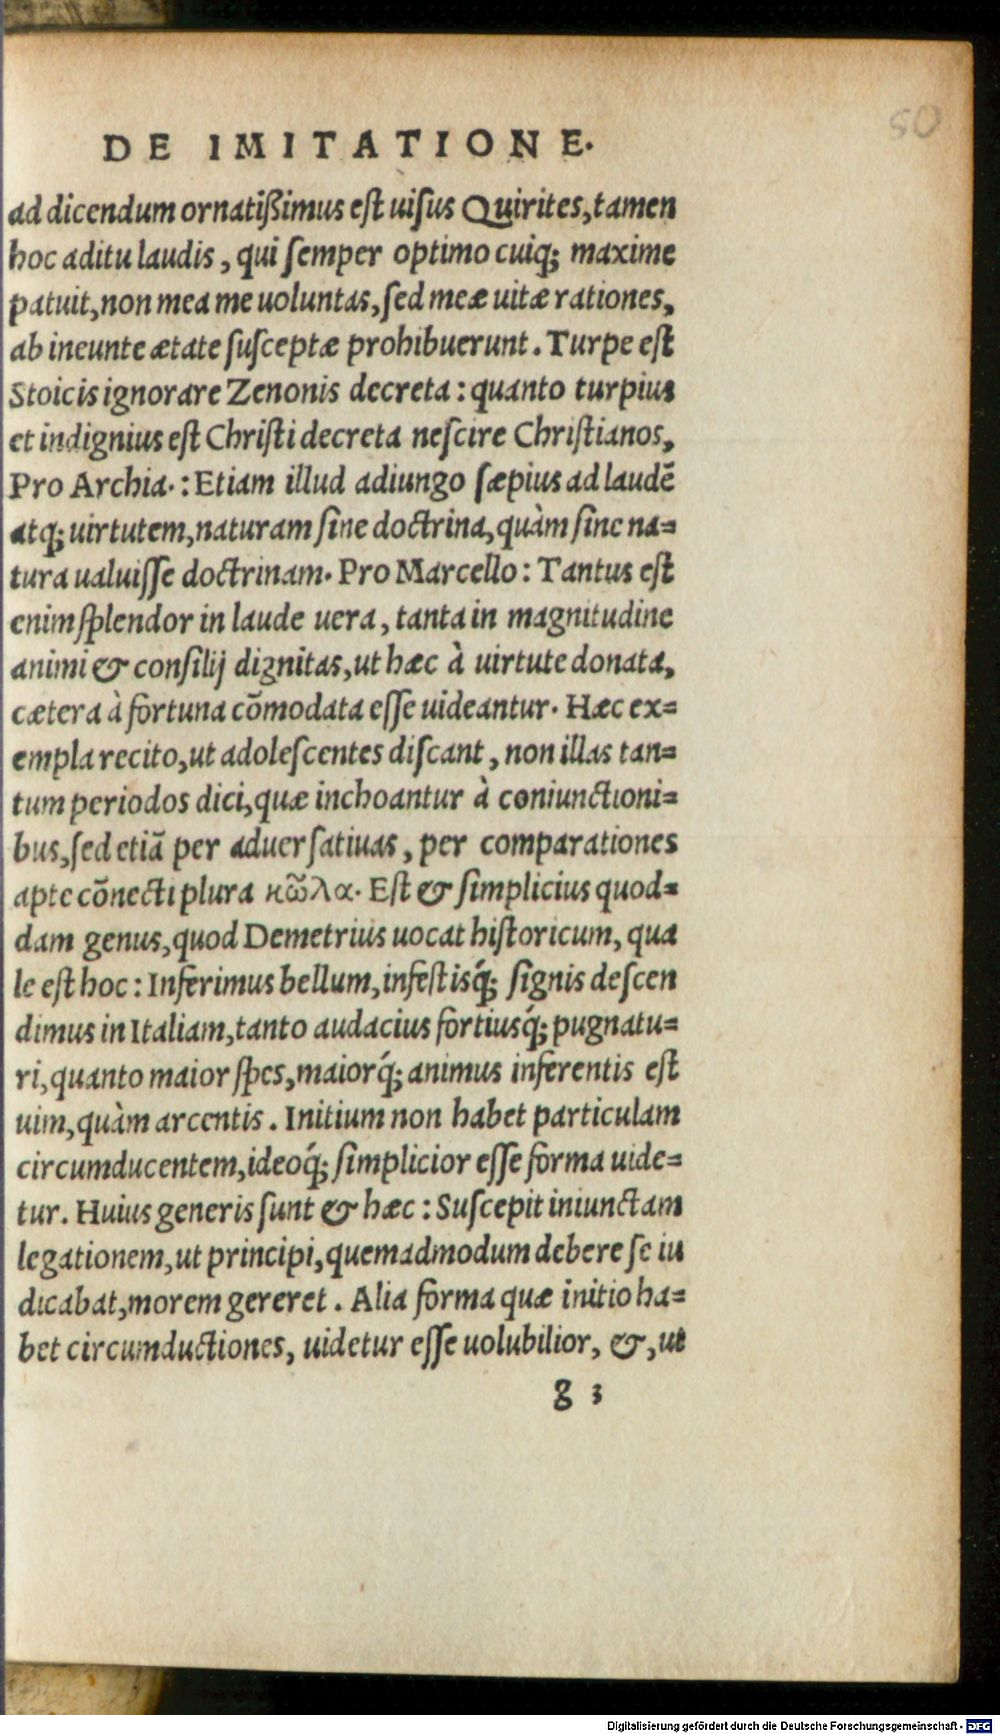 50
DE IMITATIONE.
ad dicendum ornatißimus est uisus Quirites, tamen
hoc aditu laudis, qui semper optimo cuiq; maxime
patuit, non mea me uoluntas, sed meæ uitæ rationes,
ab ineunte ætate susceptæ prohibuerunt. Turpe est
Stoicis ignorare Zenonis decreta: quanto turpius
et indignius est Christi decreta nescire Christianos,
Pro Archia.: Etiam illud adiungo sæpius ad laudē
atq; uirtutem, naturam sine doctrina, quàm sine na=
tura ualuisse doctrinam. Pro Marcello: Tantus est
enim splendor in laude uera, tanta in magnitudine
animi & consilij dignitas, ut hæc à uirtute donata,
cætera à fortuna cōmodata esse uideantur. Hæc ex=
empla recito, ut adolescentes discant, non illas tan=
tum periodos dici, quæ inchoantur à coniunctioni=
bus, sed etiā per aduersatiuas, per comparationes
apte cōnecti plura κῶλα. Est & simplicius quod=
dam genus, quod Demetrius uocat historicum, qua
le est hoc: Inferimus bellum, infestisq́; signis descen
dimus in Italiam, tanto audacius fortiusq́; pugnatu=
ri, quanto maior spes, maiorq́; animus inferentis est
uim, quàm arcentis. Initium non habet particulam
circumducentem, ideoq́; simplicior esse forma uide=
tur. Huius generis sunt & hæc: Suscepit iniunctam
legationem, ut principi, quemadmodum debere se iu
dicabat, morem gereret. Alia forma quæ initio ha=
bet circumductiones, uidetur esse uolubilior, &, ut
g 3
Digitalisierung gefördert durch die Deutsche Forschungsgemeinschaft - DFG